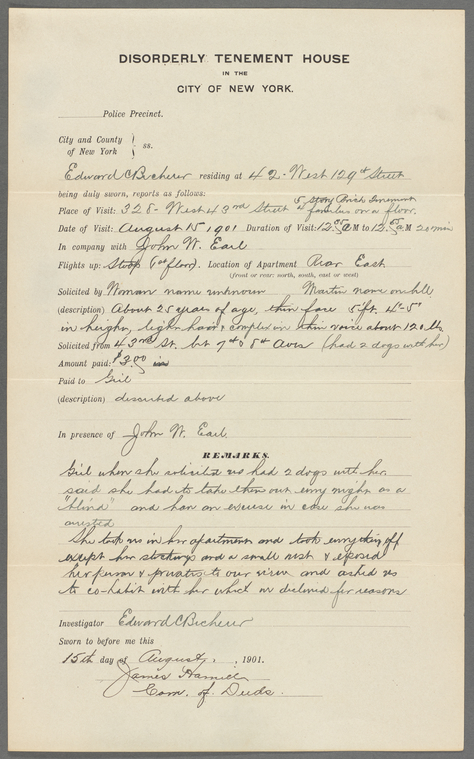 DISORDERLY TENEMENT HOUSE
IN THE
CITY OF NEW YORK.
Police Precinct.
City and County
of New York
ss.
Edward C Becherer residing at 42 - West 129th Street
being duly sworn, reports as follows:
5 story Brick tenement
Place of Visit: 328 - West 43rd Street 4 families on a floor.
Date of Visit: August 15 1901 Duration of Visit: 12.05 A M to 12.25 A M 20 min
In company with John W. Earl
Flights up: Stoop (1st floor). Location of Apartment Rear East
(front or rear: north, south, east or west)
Solicited by Woman name unknown Martin name on bell
(description) About 25 years of age, thin face 5 ft. 4"-5"
in height, light hair & complexion thin voice about 120 lbs
Solicited from 43rd St. bet 7th & 8th Aves (had 2 dogs with her)
Amount paid: $3.00
Paid to Girl
(description) described above
In presence of John W. Earl
REMARKS.
Girl when she solicited us had 2 dogs with her
said she had to take them out every night as a
"blind" and has an excuse in case she was
arrested
She took us in her apartment and took everything off
except her stockings and a small vest & exposed
her person & privates to our view and asked us
to co-habit with her which we declined for reasons
Investigator Edward C Becherer
Sworn to before me this
15th day of August, 1901.
James Hamill
Com. of Deeds.